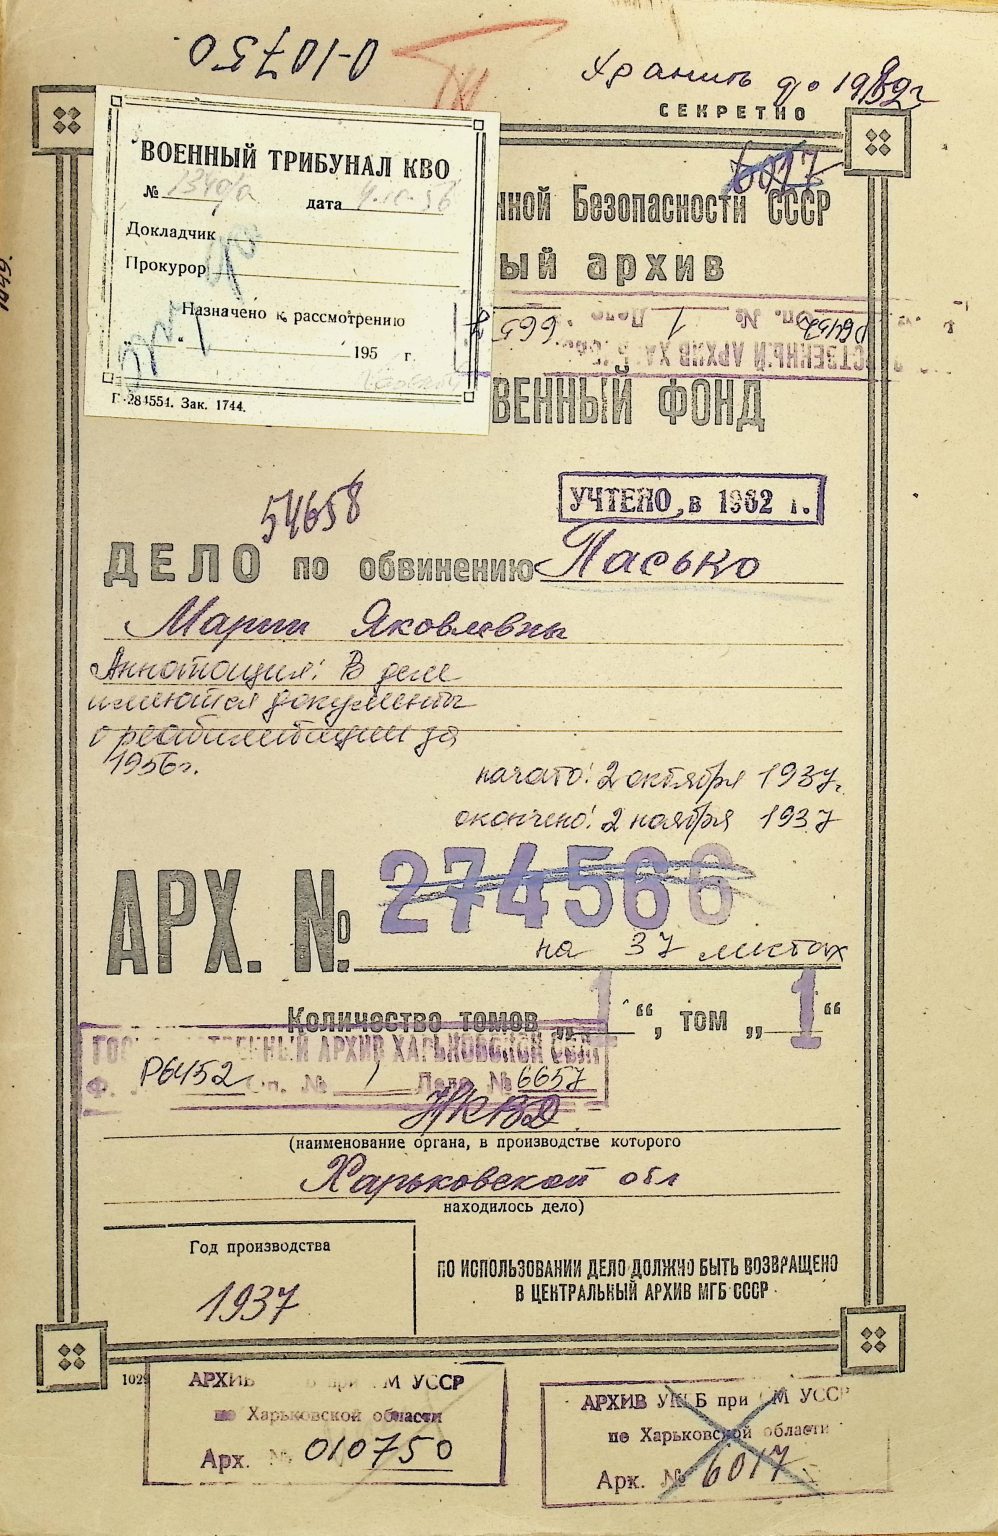 0-10750
Хранить до 1982г
СЕКРЕТНО
6017
ВОЕННЫЙ ТРИБУНАЛ КВО
№ дата
Докладчик
Прокурор
Назначено к рассмотрению
195 г.
Г-284551. Зак. 1744.
нной Безопасности СССР
ый архив
Р6452 Оп. № 1 Дело 6657
СТВЕННЫЙ АРХИВ ХА
ВЕННЫЙ ФОНД
УЧТЕНО в 1962 г.
54658
ДЕЛО по обвинению Пасько
Марии Яковлевны
Аннотация: В деле
имеются документы
о реабилитации за
1956г.
начато: 2 октября 1937г.
окончено: 2 ноября 1937
АРХ. № 274566
на 37 листах
Количество томов „1“, том „1“
ГОСУДАРСТВЕННЫЙ АРХИВ ХАРЬКОВСКОЙ ОБЛ
Ф. Р6452 Оп. № 1 Дело № 6657
НКВД
(наименование органа, в производстве которого
Харьковской обл
находилось дело)
Год производства
1937
ПО ИСПОЛЬЗОВАНИИ ДЕЛО ДОЛЖНО БЫТЬ ВОЗВРАЩЕНО
В ЦЕНТРАЛЬНЫЙ АРХИВ МГБ СССР
1029
АРХИВ при СМ УССР
по Харьковской области
Арх. № 010750
АРХИВ УКГБ при СМ УССР
по Харьковской области
Арх. № 6017